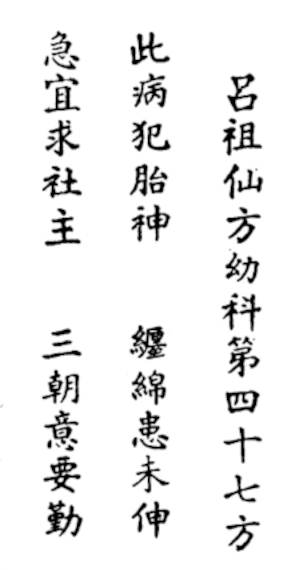 呂祖仙方幼科第四十七方
此病犯胎神　纏綿患未伸
急宜求社主　三朝意要勤